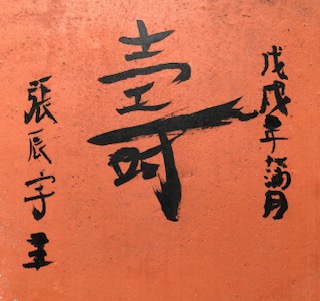 戊戌年蒲月
壽
張辰宇書